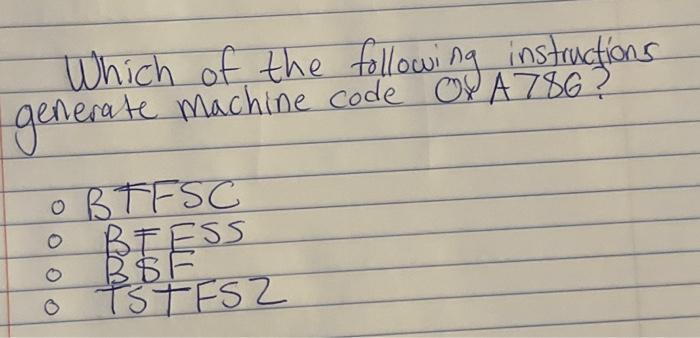 Which of the following instructions
generate machine code 0x A786?
o BTFSC
o BTFSS
o BSF
o TSTFSZ